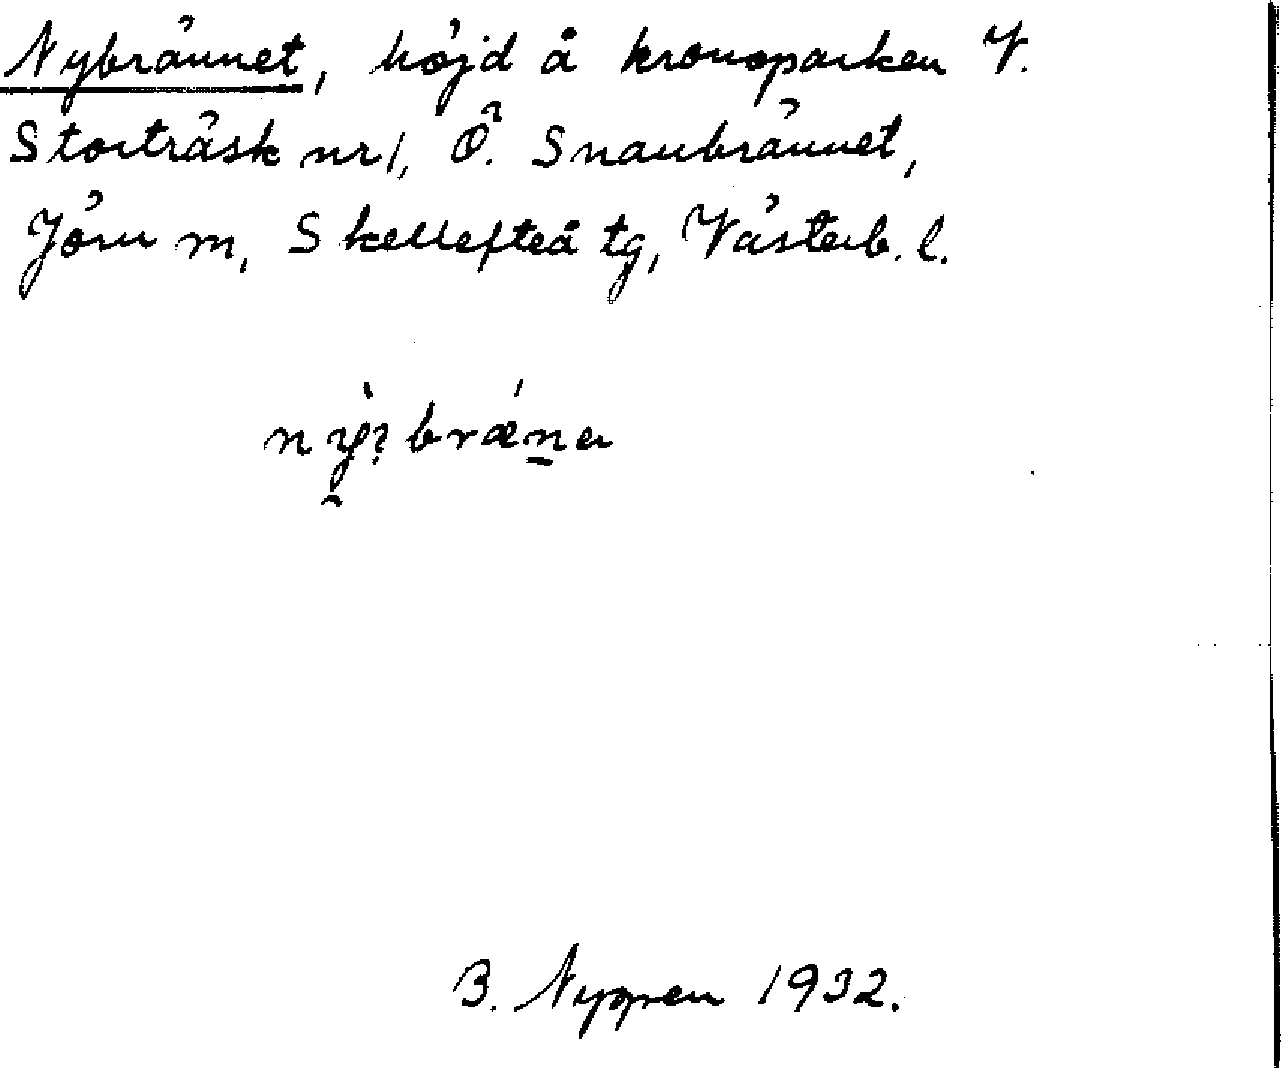 Nybrännet, höjd å kronoparken V.
Storträsk nr 1, Ö. Snaubrännet,
Jörn m, Skellefteå tg, Västerb. l.
B. Nygren 1932.